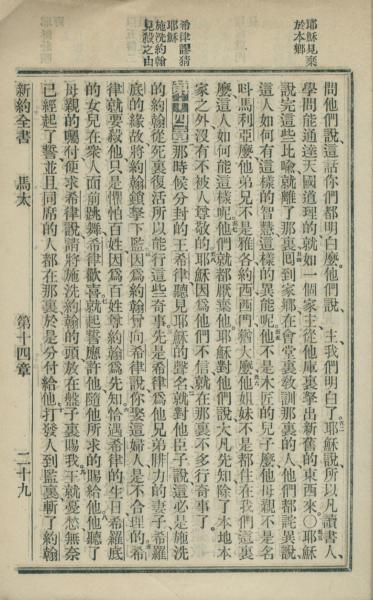 耶穌見棄
於本鄉
希律謬猜
耶穌
施洗約翰
見殺之由
問他們說、這話你們都明白麼他們說、主我們明白了耶穌說所以凡讀書人、
學問能通達天國道理的就如一個家主從他庫裏拏出新舊的東西來〇耶穌
說完這些比喻就離了那裏囘到家鄉在會堂裏敎訓那裏的人他們都詫異說、
這人如何有這樣的智慧這樣的異能呢他不是木匠的兒子麼他母親不是名
呌馬利亞麼他弟兄不是雅各約西西門猶大麼他姐妹不是都住在我們這裏
麼這人如何能這樣呢他們就都厭棄他耶穌對他們說大凡先知除了本地本
家之外沒有不被人尊敬的耶穌因爲他們不信就在那裏不多行奇事了。
那時候分封的王希律聽見耶穌的聲名就對他臣子說這必是施洗
的約翰從死裏復活所以能行這些奇事先是希律爲他兄弟腓力的妻子希羅
底的緣故將約翰鎖拏下監因爲約翰曾向希律說你娶這婦人是不合理的希
律就要殺他只是懼怕百姓因爲百姓尊約翰爲先知恰遇希律的生日希羅底
的女兒在衆人面前跳舞希律歡喜就起誓應許他隨他所求的賜給他他聽了
母親的囑付便求希律說請將施洗約翰的頭放在盤子裏賜我王就憂愁無奈
已經起了誓並且同席的人都在那裏於是分付給他打發人到監裏斬了約翰
新約全書 馬太 第十四章 二十九